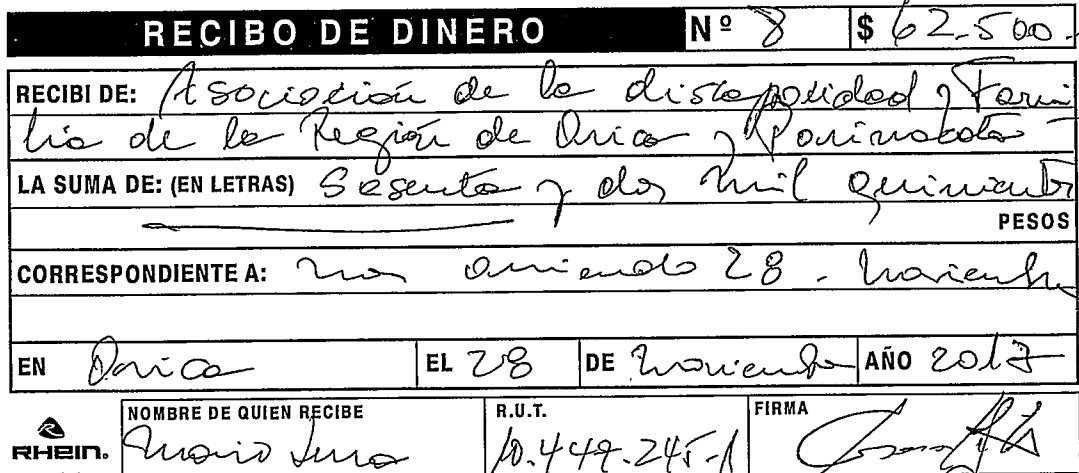 RECIBO DE DINERO Nº 8 $ 62.500.
RECIBI DE: Asociación de la discapacidad y Fami
lia de la Región de Arica y Parinacota -
LA SUMA DE: (EN LETRAS) Sesenta y dos mil quinientos
PESOS
CORRESPONDIENTE A: mes arriendo 28 - Noviembre
EN Arica EL 28 DE Noviembre AÑO 2017
NOMBRE DE QUIEN RECIBE R.U.T. FIRMA
RHEIN. Mario 10.449.245-1